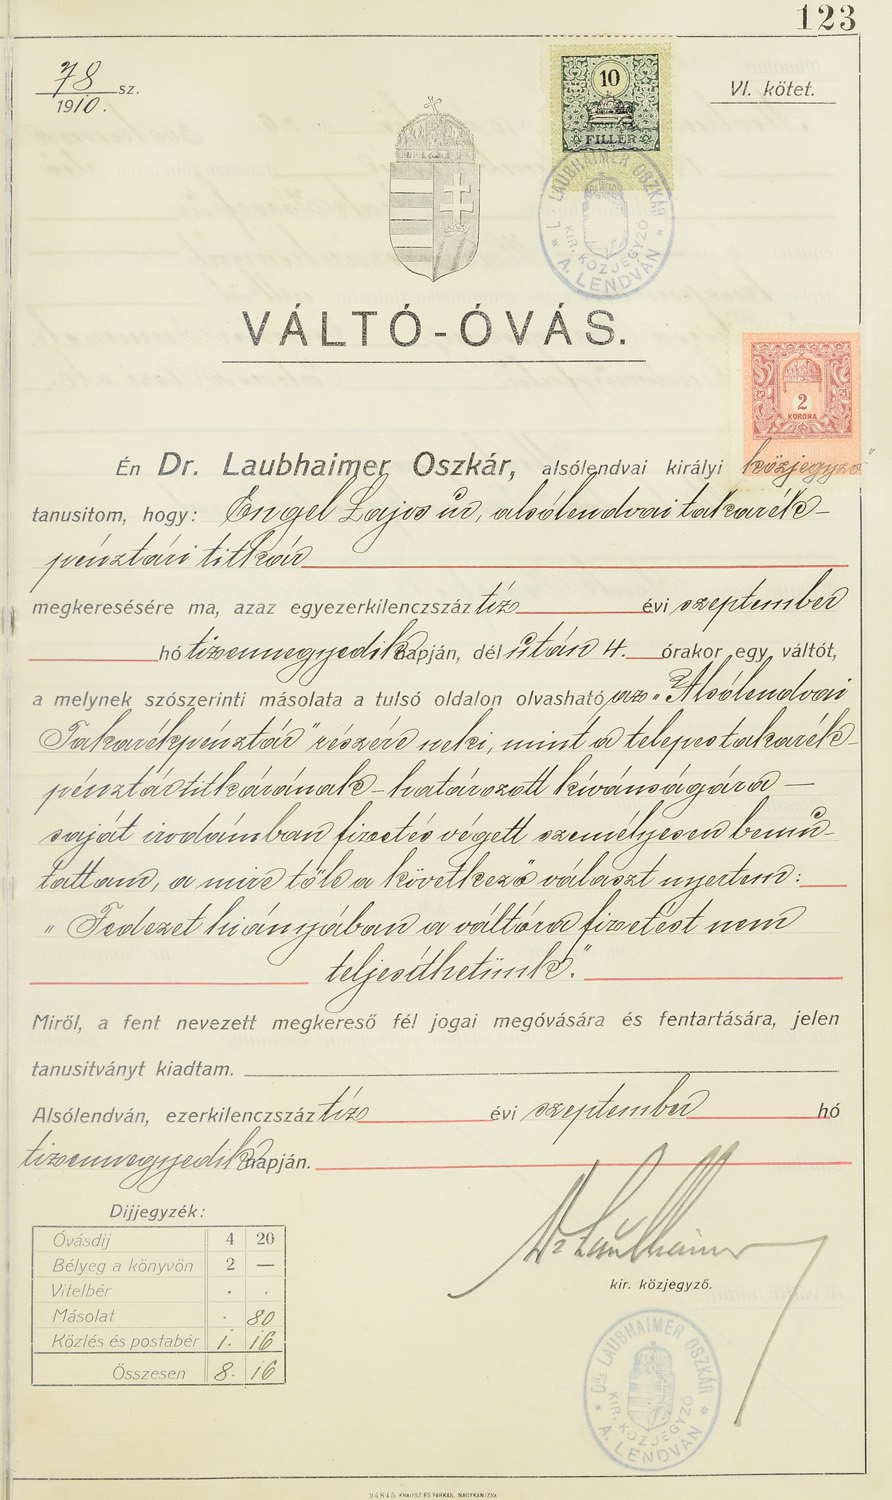 123
78 sz.
1910.
VI. kötet.
10
FILLÉR
DR LAUBHAIMER OSZKÁR
KIR. KÖZJEGYZŐ
* A. LENDVÁN *
VÁLTÓ-ÓVÁS.
2
KORONA
Én Dr. Laubhaimer Oszkár, alsólendvai királyi közjegyző
tanusitom, hogy: Engel Lajos úr, alsólendvai takarék-
pénztári titkár
megkeresésére ma, azaz egyezerkilenczszáz tíz évi szeptember
hó tizennegyedik napján, dél után 4. órakor egy váltót,
a melynek szószerinti másolata a tulsó oldalon olvasható, az „Alsólendvai
Takarékpénztár" részére neki, mint a telepes takarék-
pénztár titkárának - határozott kívánságára -
saját irodámban fizetés végett személyesen bemu-
tattam, a mire tőle a következő választ nyertem:
„Fedezet hiányjában a váltóra fizetést nem
teljesíthetünk."
Miről, a fent nevezett megkereső fél jogai megóvására és fentartására, jelen
tanusitványt kiadtam.
Alsólendván, ezerkilenczszáz tíz évi szeptember hó
tizennegyedik napján.
Dijjegyzék:
Óvásdij 4 20
Bélyeg a könyvön 2 —
Vitelbér . .
Másolat . 80
Közlés és postabér 1. 16
Összesen 8. 16
Dr Laubhaimer
kir. közjegyző.
DR LAUBHAIMER OSZKÁR
KIR. KÖZJEGYZŐ
* A. LENDVÁN *
24845 KRAUSZ ÉS FARKAS, NAGYKANIZSA